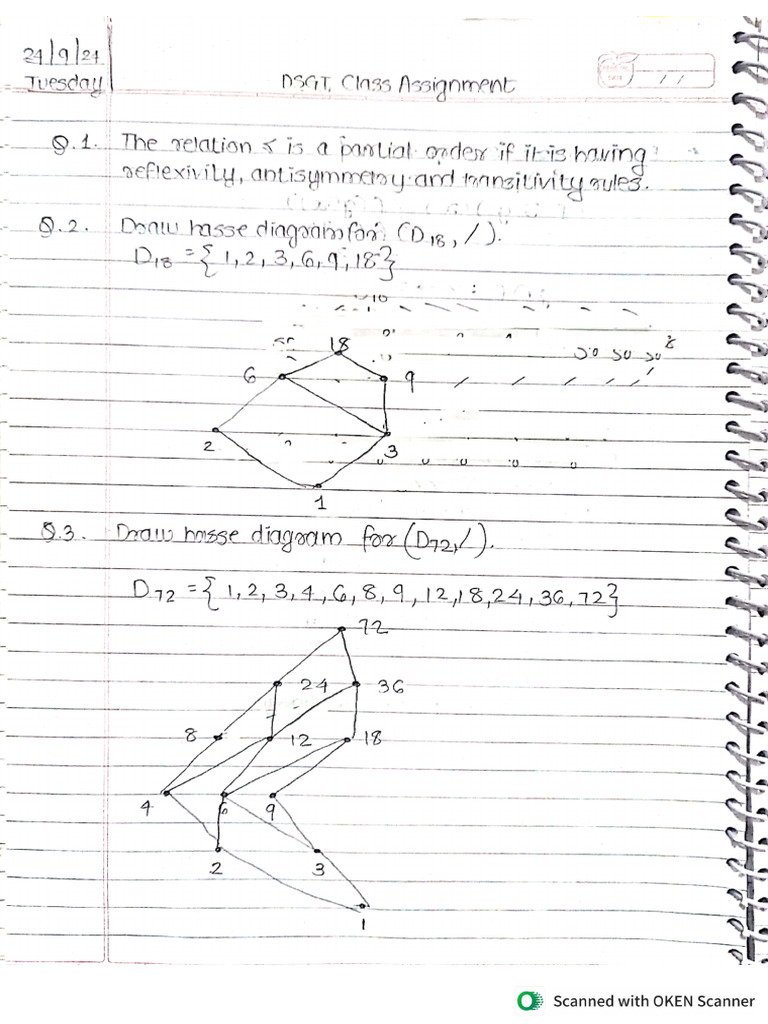 24/9/24
Tuesday
DSGT Class Assignment
/ /
Q.1. The relation ≤ is a partial order if it is having
reflexivity, antisymmetry and transitivity rules.
Q.2. Draw hasse diagram for (D18, /).
D18 = {1, 2, 3, 6, 9, 18}
18
6 9
2 3
1
Q.3. Draw hasse diagram for (D72, /).
D72 = {1, 2, 3, 4, 6, 8, 9, 12, 18, 24, 36, 72}
72
24 36
8 12 18
4 6 9
2 3
1
Scanned with OKEN Scanner